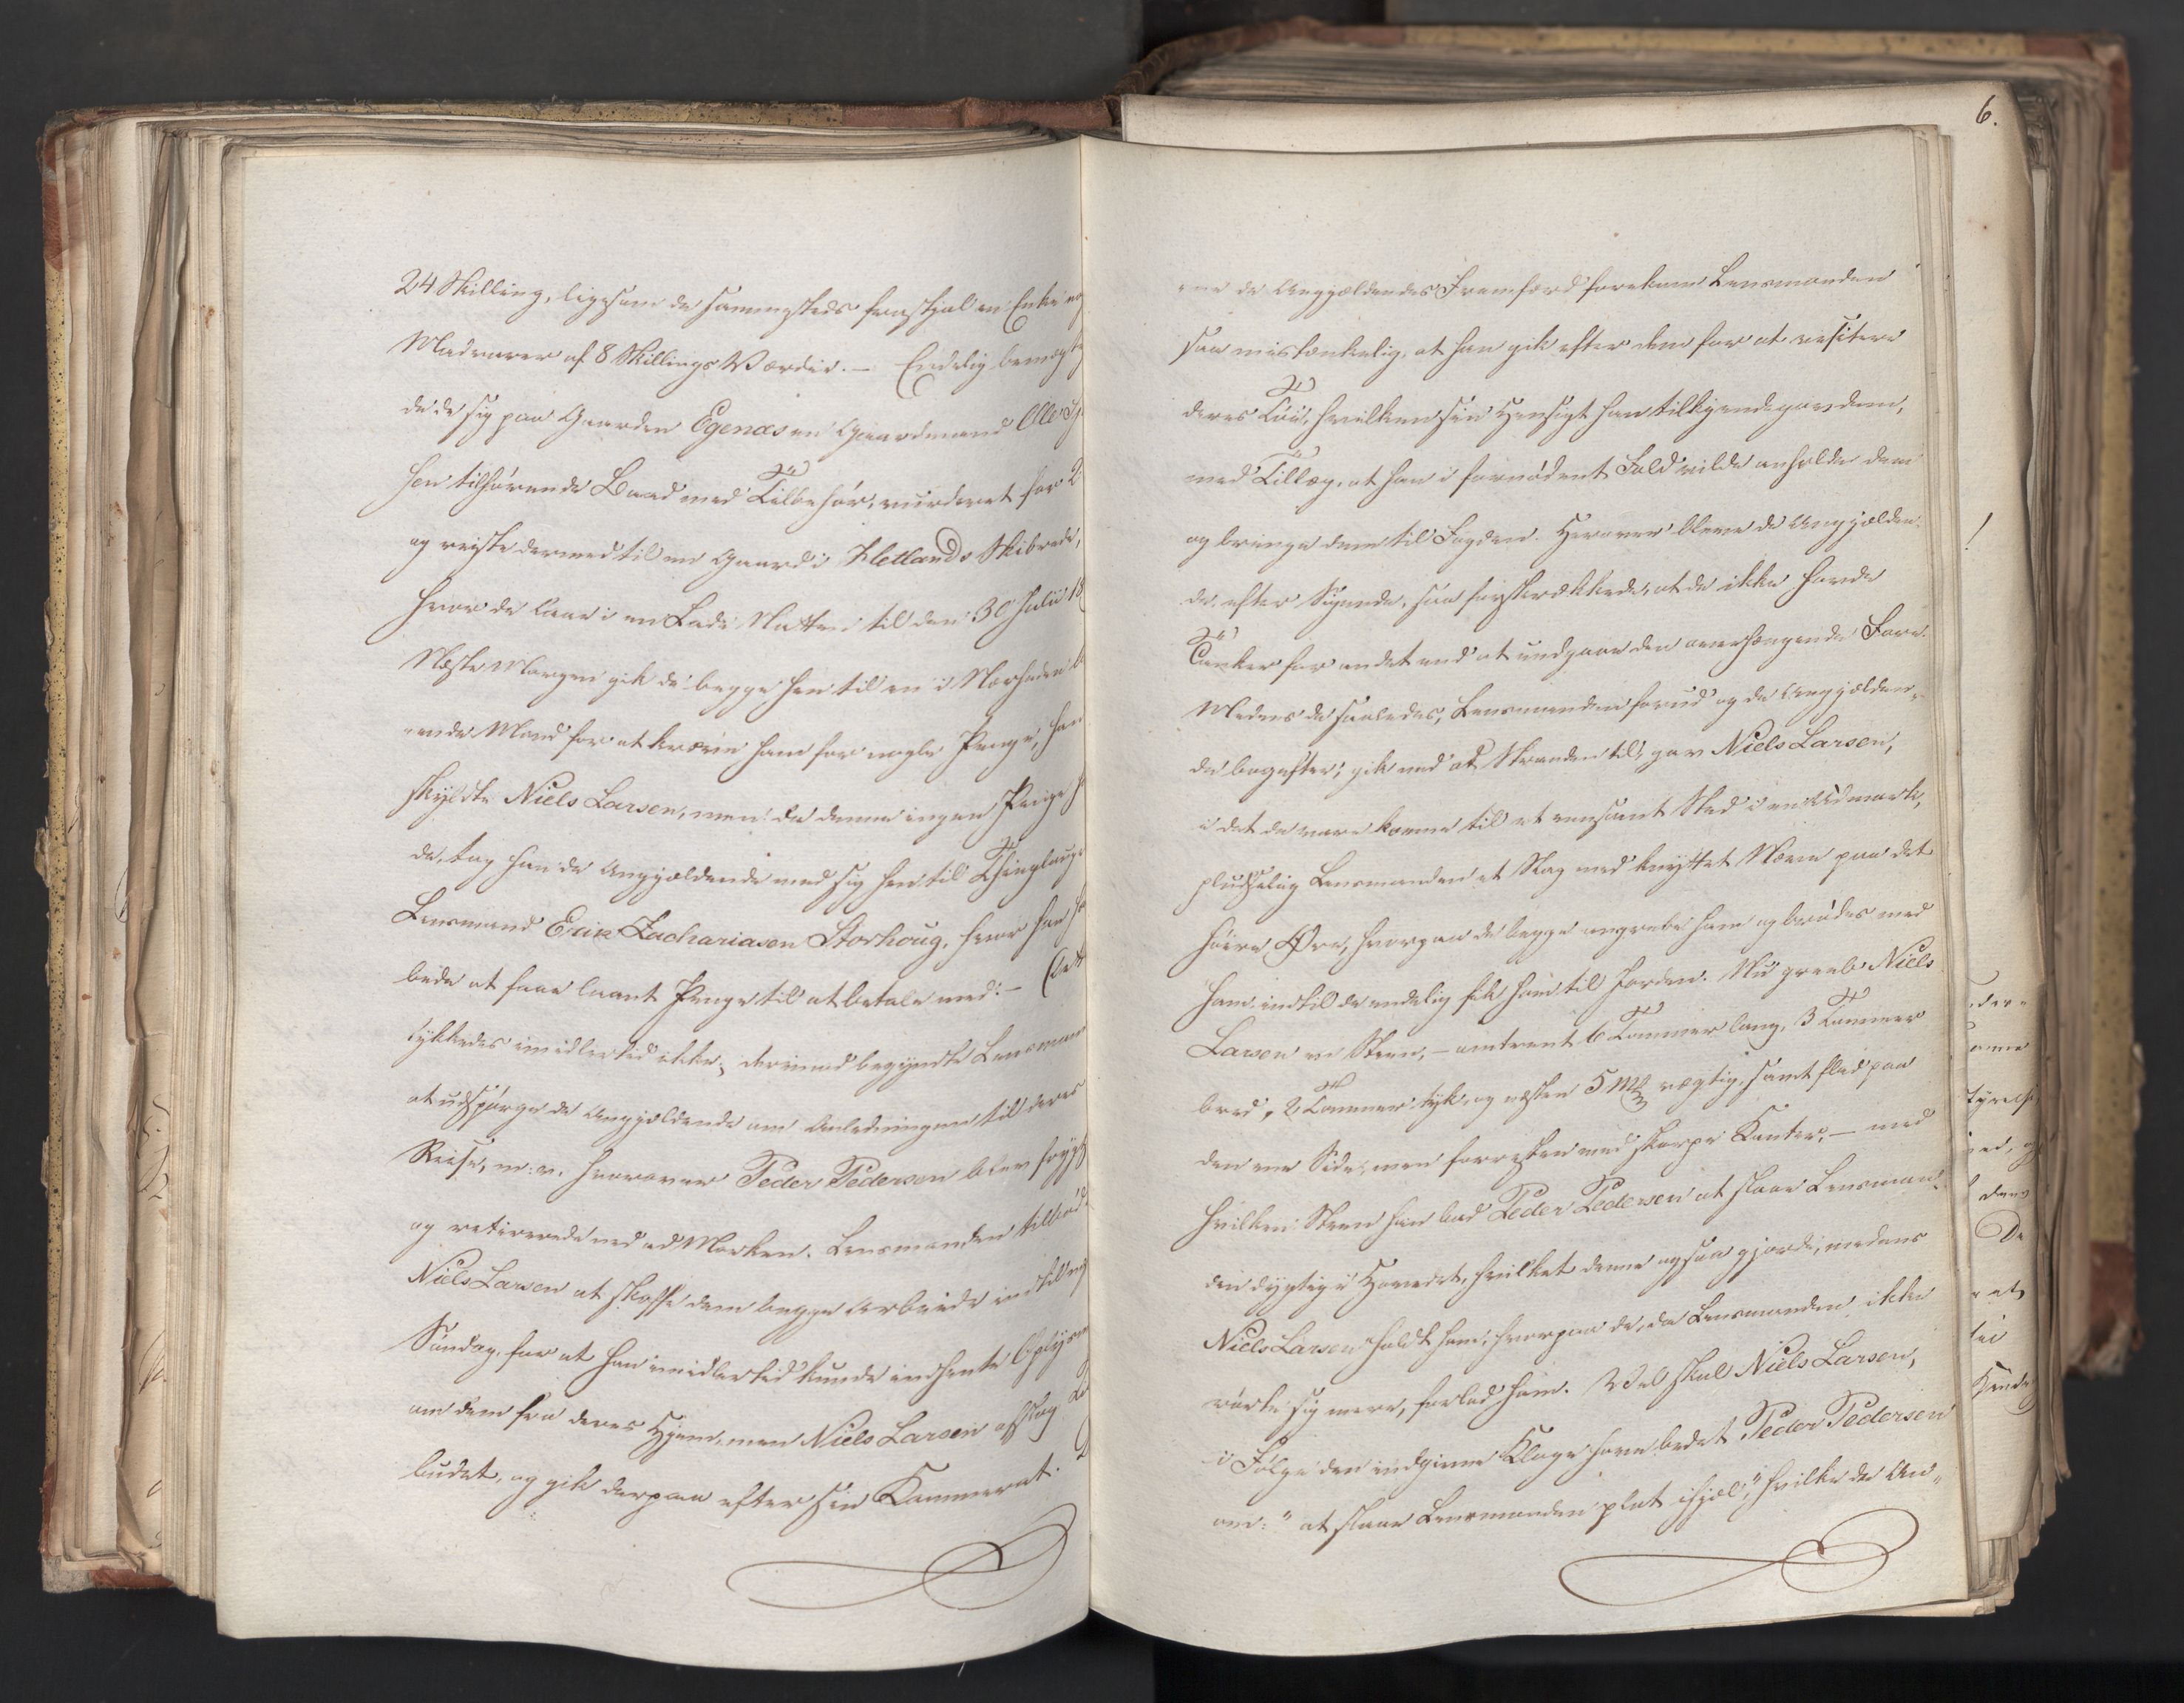 24 Skilling, ligesom de sammesteds frastjal en Enke
Madvarer af 8 Skillings Værdie. — Endelig bemægtig
de de sig paa Gaarden Egenæs en Gaardmand Olle
sen tilhørende Baad med Tilbehør, vurderet for 2
og reiste dermed til en Gaard i Hetlands Skibrede,
hvor de laae i en Lade Natten til den 30 Julii 18
Næste Morgen gik de begge hen til en i Nærheden
ende Mand for at kræve ham for nogle Penge, han
skyldte Niels Larsen, men da denne ingen Penge
de, tog han de Angjældende med sig hen til Thinglaugs
Lensmand Erik Zachariasen Storhoug, hvor han
bede at faae laant Penge til at betale med. — Dette
lykkedes imidlertid ikke; derimod begyndte Lensmanden
at udspørge de Angjældende om Anledningen til deres
Reise, m: v. hvorover Peder Pedersen blev frygt
og retirerede ned ad Marken. Lensmanden tilbød
Niels Larsen at skaffe dem begge Arbeide indtil
Søndag, for at han imidlertid kunde indhente Oplysn
om dem fra deres Hjem, men Niels Larsen afslog
budet, og gik derpaa efter sin Kammerat.
6.
de Angjældendes Fremfærd forekom Lensmanden
saa mistænkelig, at han gik efter dem for at visitere
deres Tøi, hvilken sin Hensigt han tilkjendegav dem,
med Tillæg, at han i fornødent Fald vilde anholde dem
og bringe dem til Fogden. Herover bleve de Angjælden-
de, efter Sigende, saa forskrækkede, at de ikke havde
Tanker for andet end at undgaae den overhængende Fare.
Medens de saaledes, Lensmanden forud og de Angjælden-
de bagefter, gik ned at Stranden til, gav Niels Larsen,
i det de vare komne til et eensomt Sted i en Udmark,
pludselig Lensmanden et Slag med knyttet Næve paa det
høire Øre, hvorpaa de begge angrebe ham og brødes med
ham indtil de endelig fik ham til Jorden. Nu greeb Niels
Larsen en Steen, — omtrent 6 Tommer lang, 3 Tommer
bred, 2 Tommer tyk og næsten 5 Mk vægtig, samt flad paa
den ene Side, men forresten med skarpe Kanter, — med
hvilken Steen han bad Peder Pedersen at slaae Lensman-
den dygtig i Hovedet, hvilket denne ogsaa gjorde, medens
Niels Larsen holdt ham, hvorpaa de, da Lensmanden ikke
rørte sig mere, forlod ham. Vel skal Niels Larsen,
i Følge den indgivne Klage have bedet Peder Pedersen
om: "at slaae Lensmanden plat ihjel", hvilke de An-